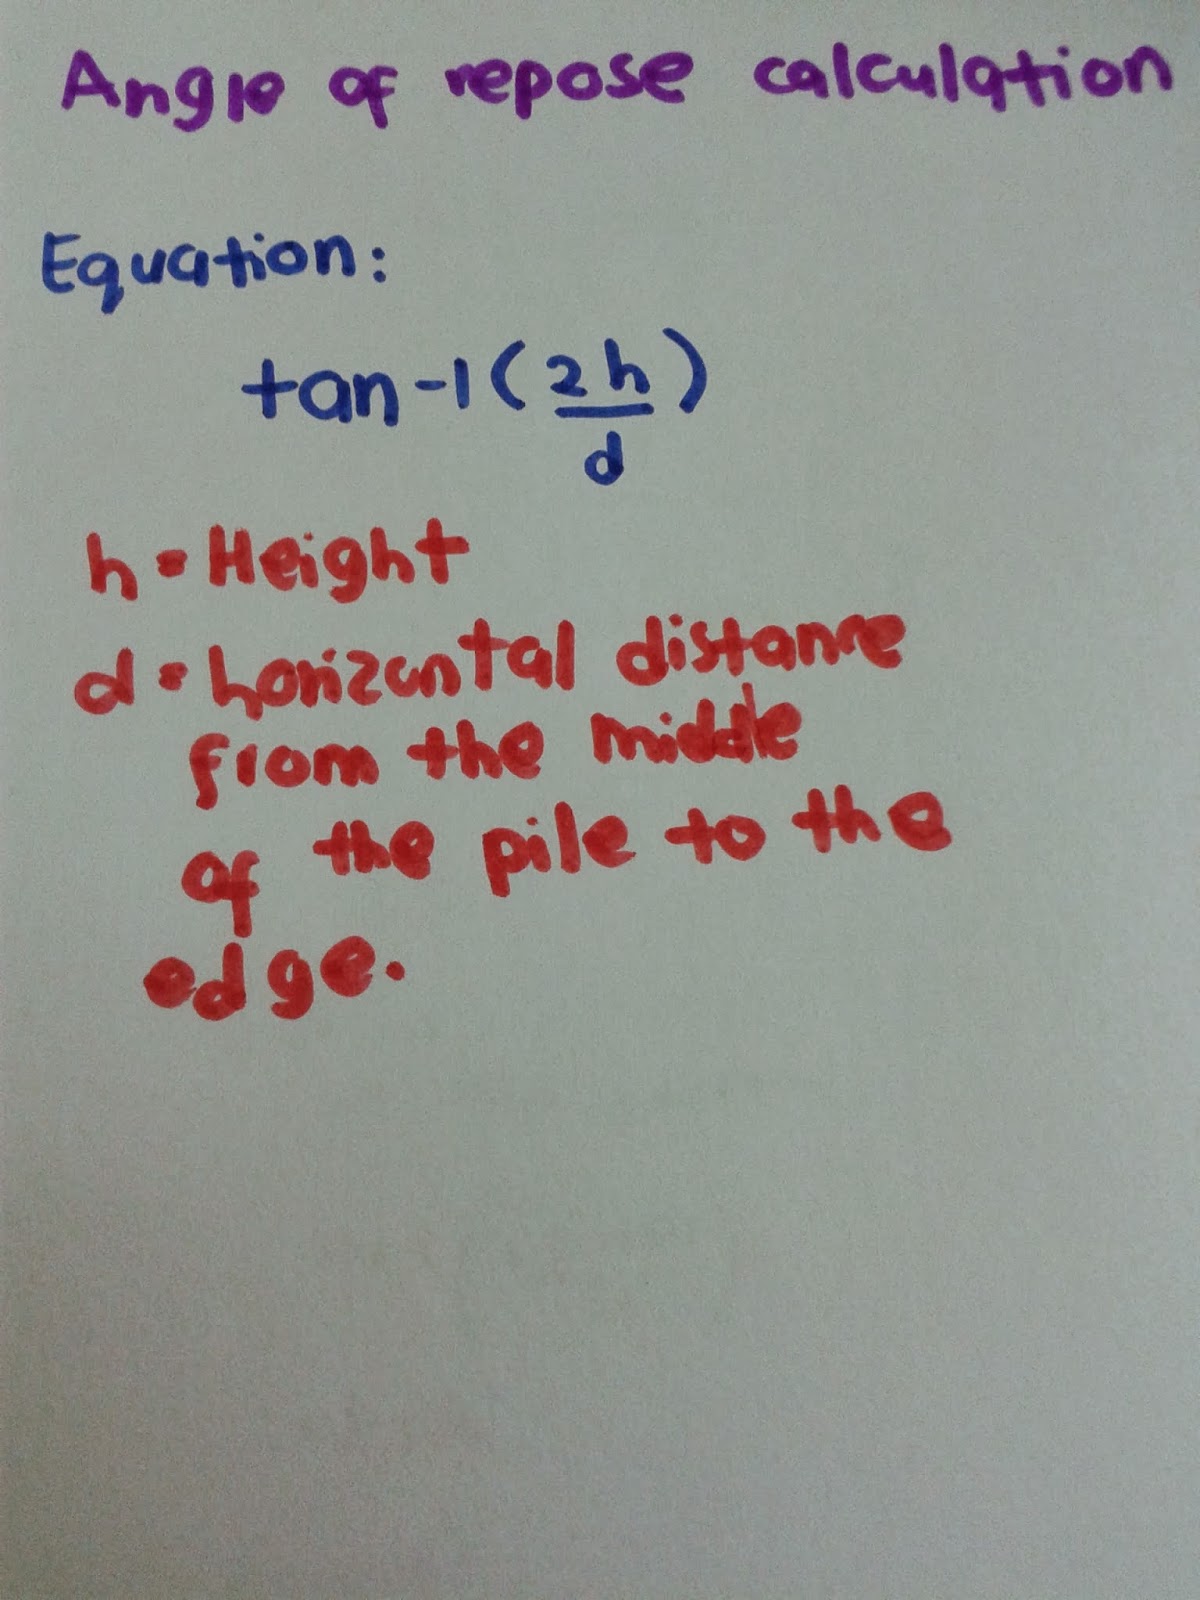 Angle of repose calculation
Equation:
tan-1(2h/d)
h = Height
d = horizontal distance
from the middle
of the pile to the
edge.